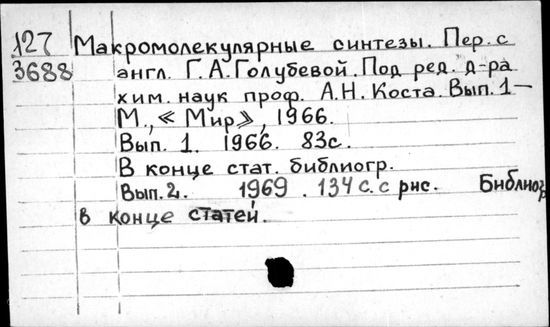 127 Макромолекулярные синтезы. Пер. с
3688 англ. Г.А.Голубевой. Под ред. д-ра
хим. наук проф. А.Н. Коста. Вып. 1—
М., «Мир», 1966.
Вып. 1. 1966. 83с.
В конце стат. библиогр.
Вып. 2. 1969. 134 с. с рис. Библиогр
в конце статей.